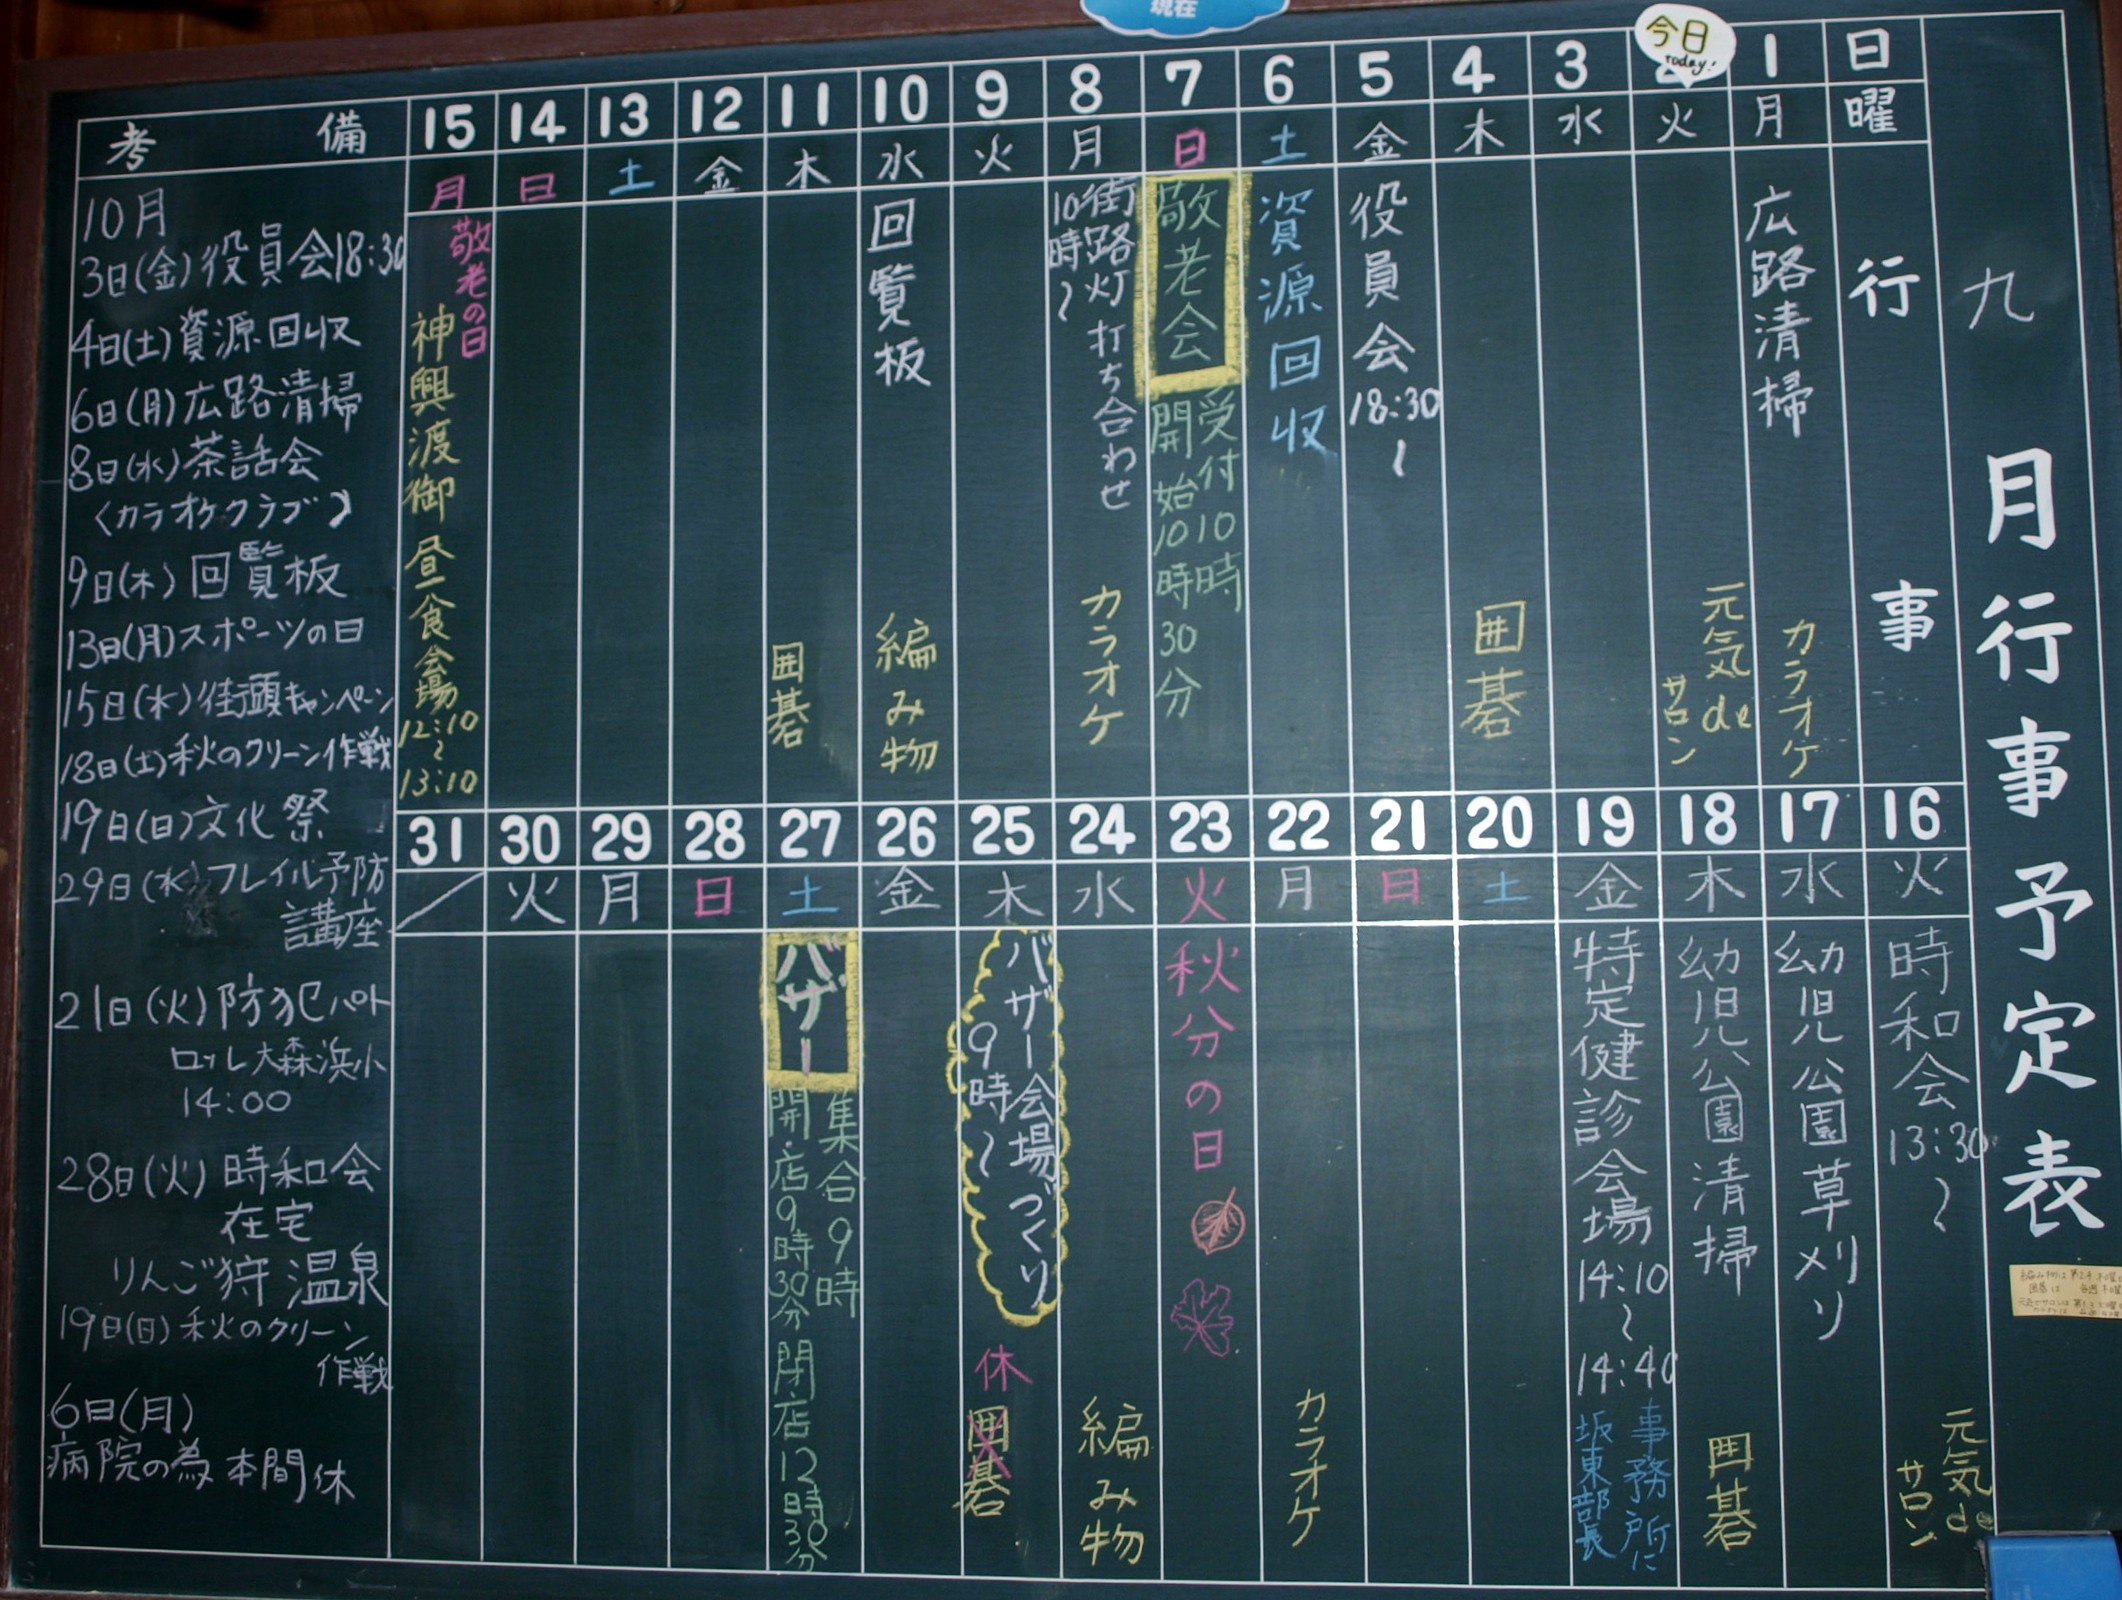 現在
九月行事予定表
日
曜
行事
1
月
広路清掃
カラオケ
今日
Today!
火
元気de
サロン
3
水
4
木
囲碁
5
金
役員会18:30〜
6
土
資源回収
7
日
敬老会
受付10時
開始10時30分
8
月
街路灯打ち合わせ
10時〜
カラオケ
9
火
10
水
回覧板
編み物
11
木
囲碁
12
金
13
土
14
日
15
月
敬老の日
神興渡御 昼食会場
12:10
〜
13:10
16
火
時和会13:30〜
元気de
サロン
17
水
幼児公園草刈り
18
木
幼児公園清掃
囲碁
19
金
特定健診会場
14:10
〜
14:40
事務所に
坂東部長
20
土
21
日
22
月
カラオケ
23
火
秋分の日
24
水
編み物
25
木
バザー会場づくり
9時〜
休
囲碁
26
金
27
土
バザー
集合9時
開店9時30分 閉店12時30分
28
日
29
月
30
火
31
備考
10月
3日(金)役員会18:30
4日(土)資源回収
6日(月)広路清掃
8日(水)茶話会
〈カラオケクラブ〉
9日(木)回覧板
13日(月)スポーツの日
15日(水)街頭キャンペーン
18日(土)秋のクリーン作戦
19日(日)文化祭
29日(水)フレイル予防
講座
21日(火)防犯パト
ロール大森浜小
14:00
28日(火)時和会
在宅
りんご狩 温泉
19日(日)秋のクリーン
作戦
6日(月)
病院の為 本間休